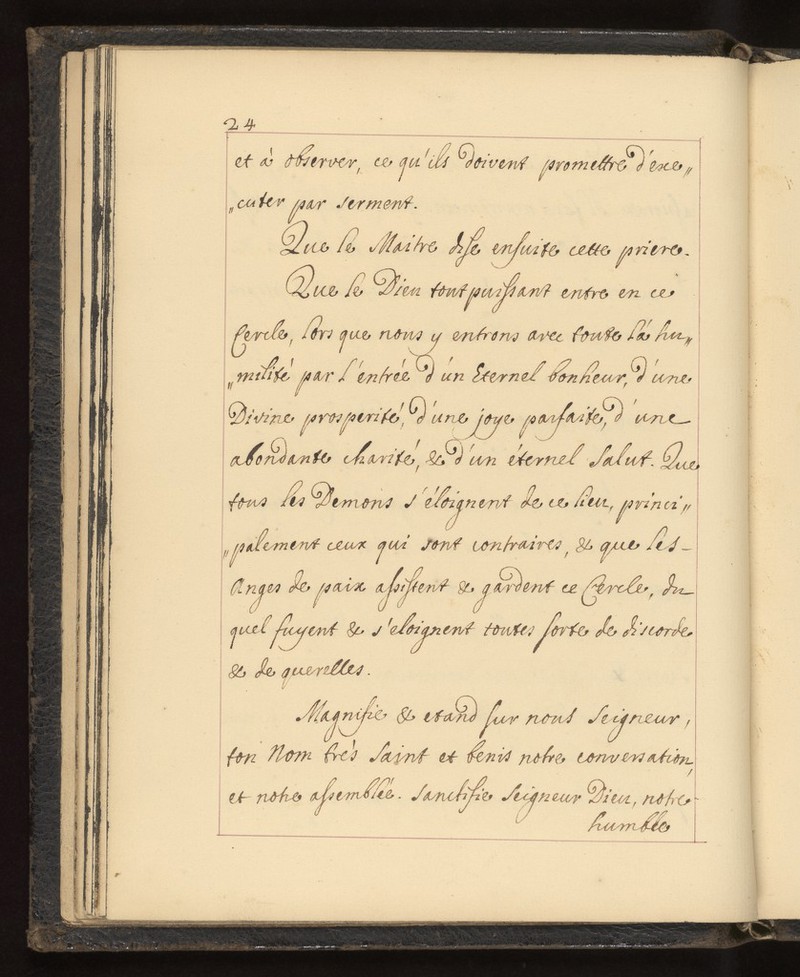 24
et à observer, ce qu'ils doivent promettre d'exe„
„cuter par serment.
Que le Maitre dise ensuite cette priere.
Que le Dieu tout puissant entre en ce
Cercle, lors que nous y entrons avec toute là hu„
„milité par l'entrée d'un Eternel bonheur, d'une
Divine prosperité, d'une joye parfaite, d'une
abondante charité, & d'un éternel salut. Que
tous les Demons s'éloignent de ce lieu, princi„
„palement ceux qui sont contraires, & que les-
Anges de paix assistent & gardent ce Cercle, du
quel fuyent & s'eloignent toutes sorte de discorde
& de querelles.
Magnifie & etand sur nous Seigneur,
ton Nom trés Saint et benis notre conversation,
et notre assemblée. Sanctifie Seigneur Dieu, notre-
humble